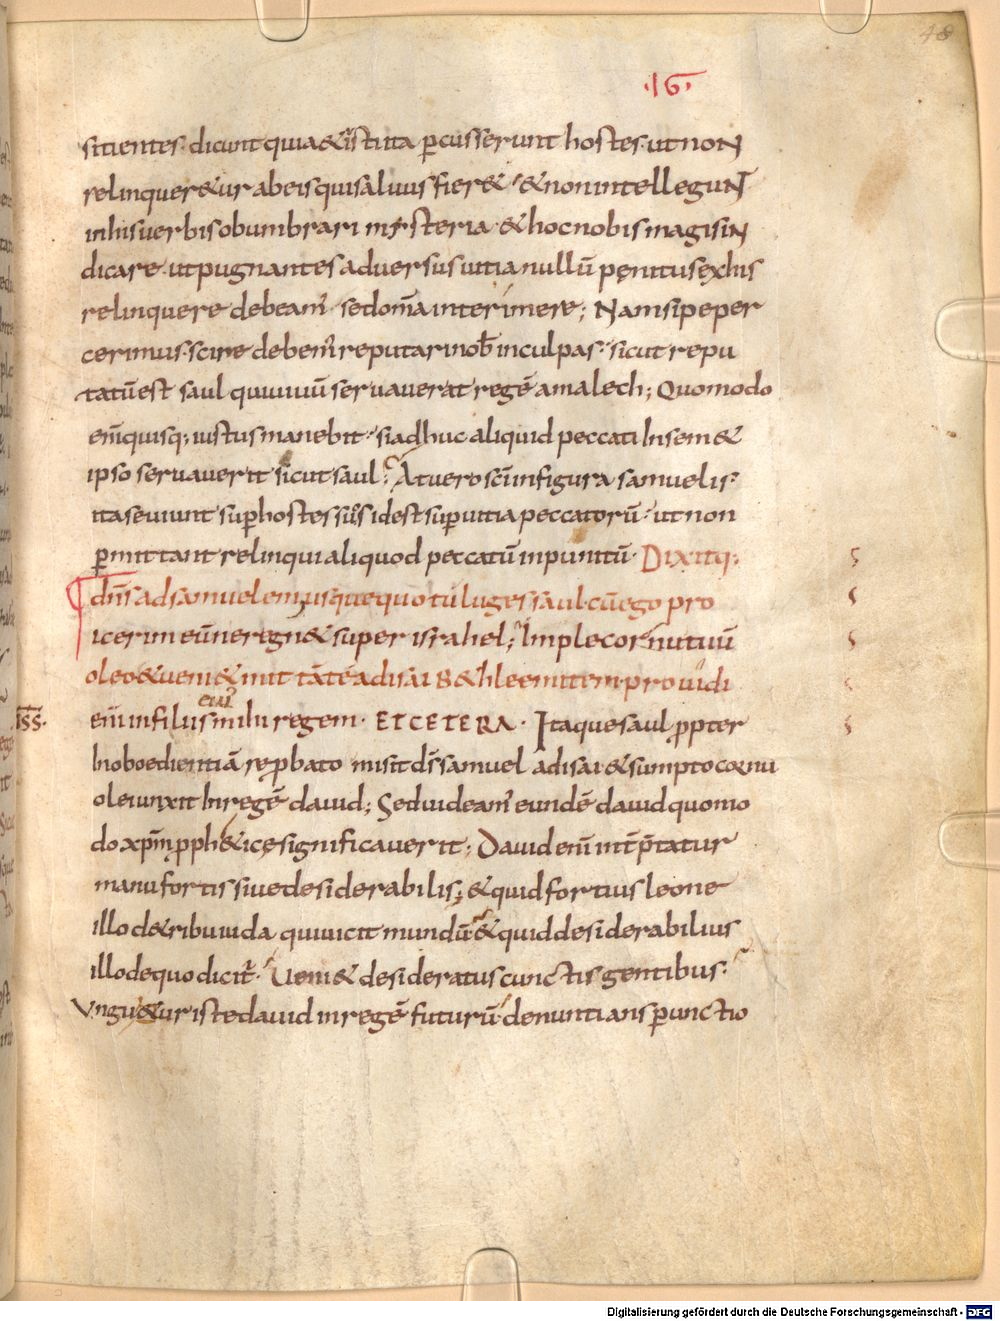 48
·16·
sitientes· dicunt quia & ista ita ꝑcusserunt hostes· ut non
relinquer&ur ab eis qui saluus fier& · & non intellegunt
in his uerbis obumbrari mysteria · & hoc nobis magis in
dicare· ut pugnantes aduersus uitia nullū penitus ex his
relinquere debeam᾽ sed om̄a interimere; Nam si peper
cerimus· scire debem᾽ reputari nob̄ in culpas· sicut repu
tatū est saul qui uiuū seruauerat regē amalech; Quomodo
eni̅ quisq; iustus manebit· si adhuc aliquid peccati In sem&
ipso seruauerit sicut saul? At uero sc̄i in figura samuelis·
ita seuiunt suꝑ hostes suos id est suꝑ uitia peccatorū· ut non
ꝑmittant relinqui aliquod peccatū inpunitū· Dixitq;
dn̄s ad samuelem· usquequo tu luges saul· cū ego pro
iecerim eū ne regn& super israhel; Imple cornu tuū
oleo & ueni & mittā te ad isai b&hleemitem· prouidi
eni̅ in filiis ei᾽ mihi regem· ETCETERA· Itaque saul ꝓpter
Inoboedientiā reprobato misit ds̄ samuel ad isai & sumpto cornu
olei unxit In regē dauid; Sed uideam᾽ eundē dauid quomo
do xp̄m proph&ice significauerit; Dauid eni̅ int̄p̄tatur
manu fortis siue desiderabilis; & quid fortius leone
illo de tribu iuda qui uicit mundū & quid desiderabilius
illo de quo dicit᾽ · Ueni& desideratus cunctis gentibus·
Ungu&ur iste dauid in regē futurū denuntians ꝑ unctio
Digitalisierung gefördert durch die Deutsche Forschungsgemeinschaft - DFG